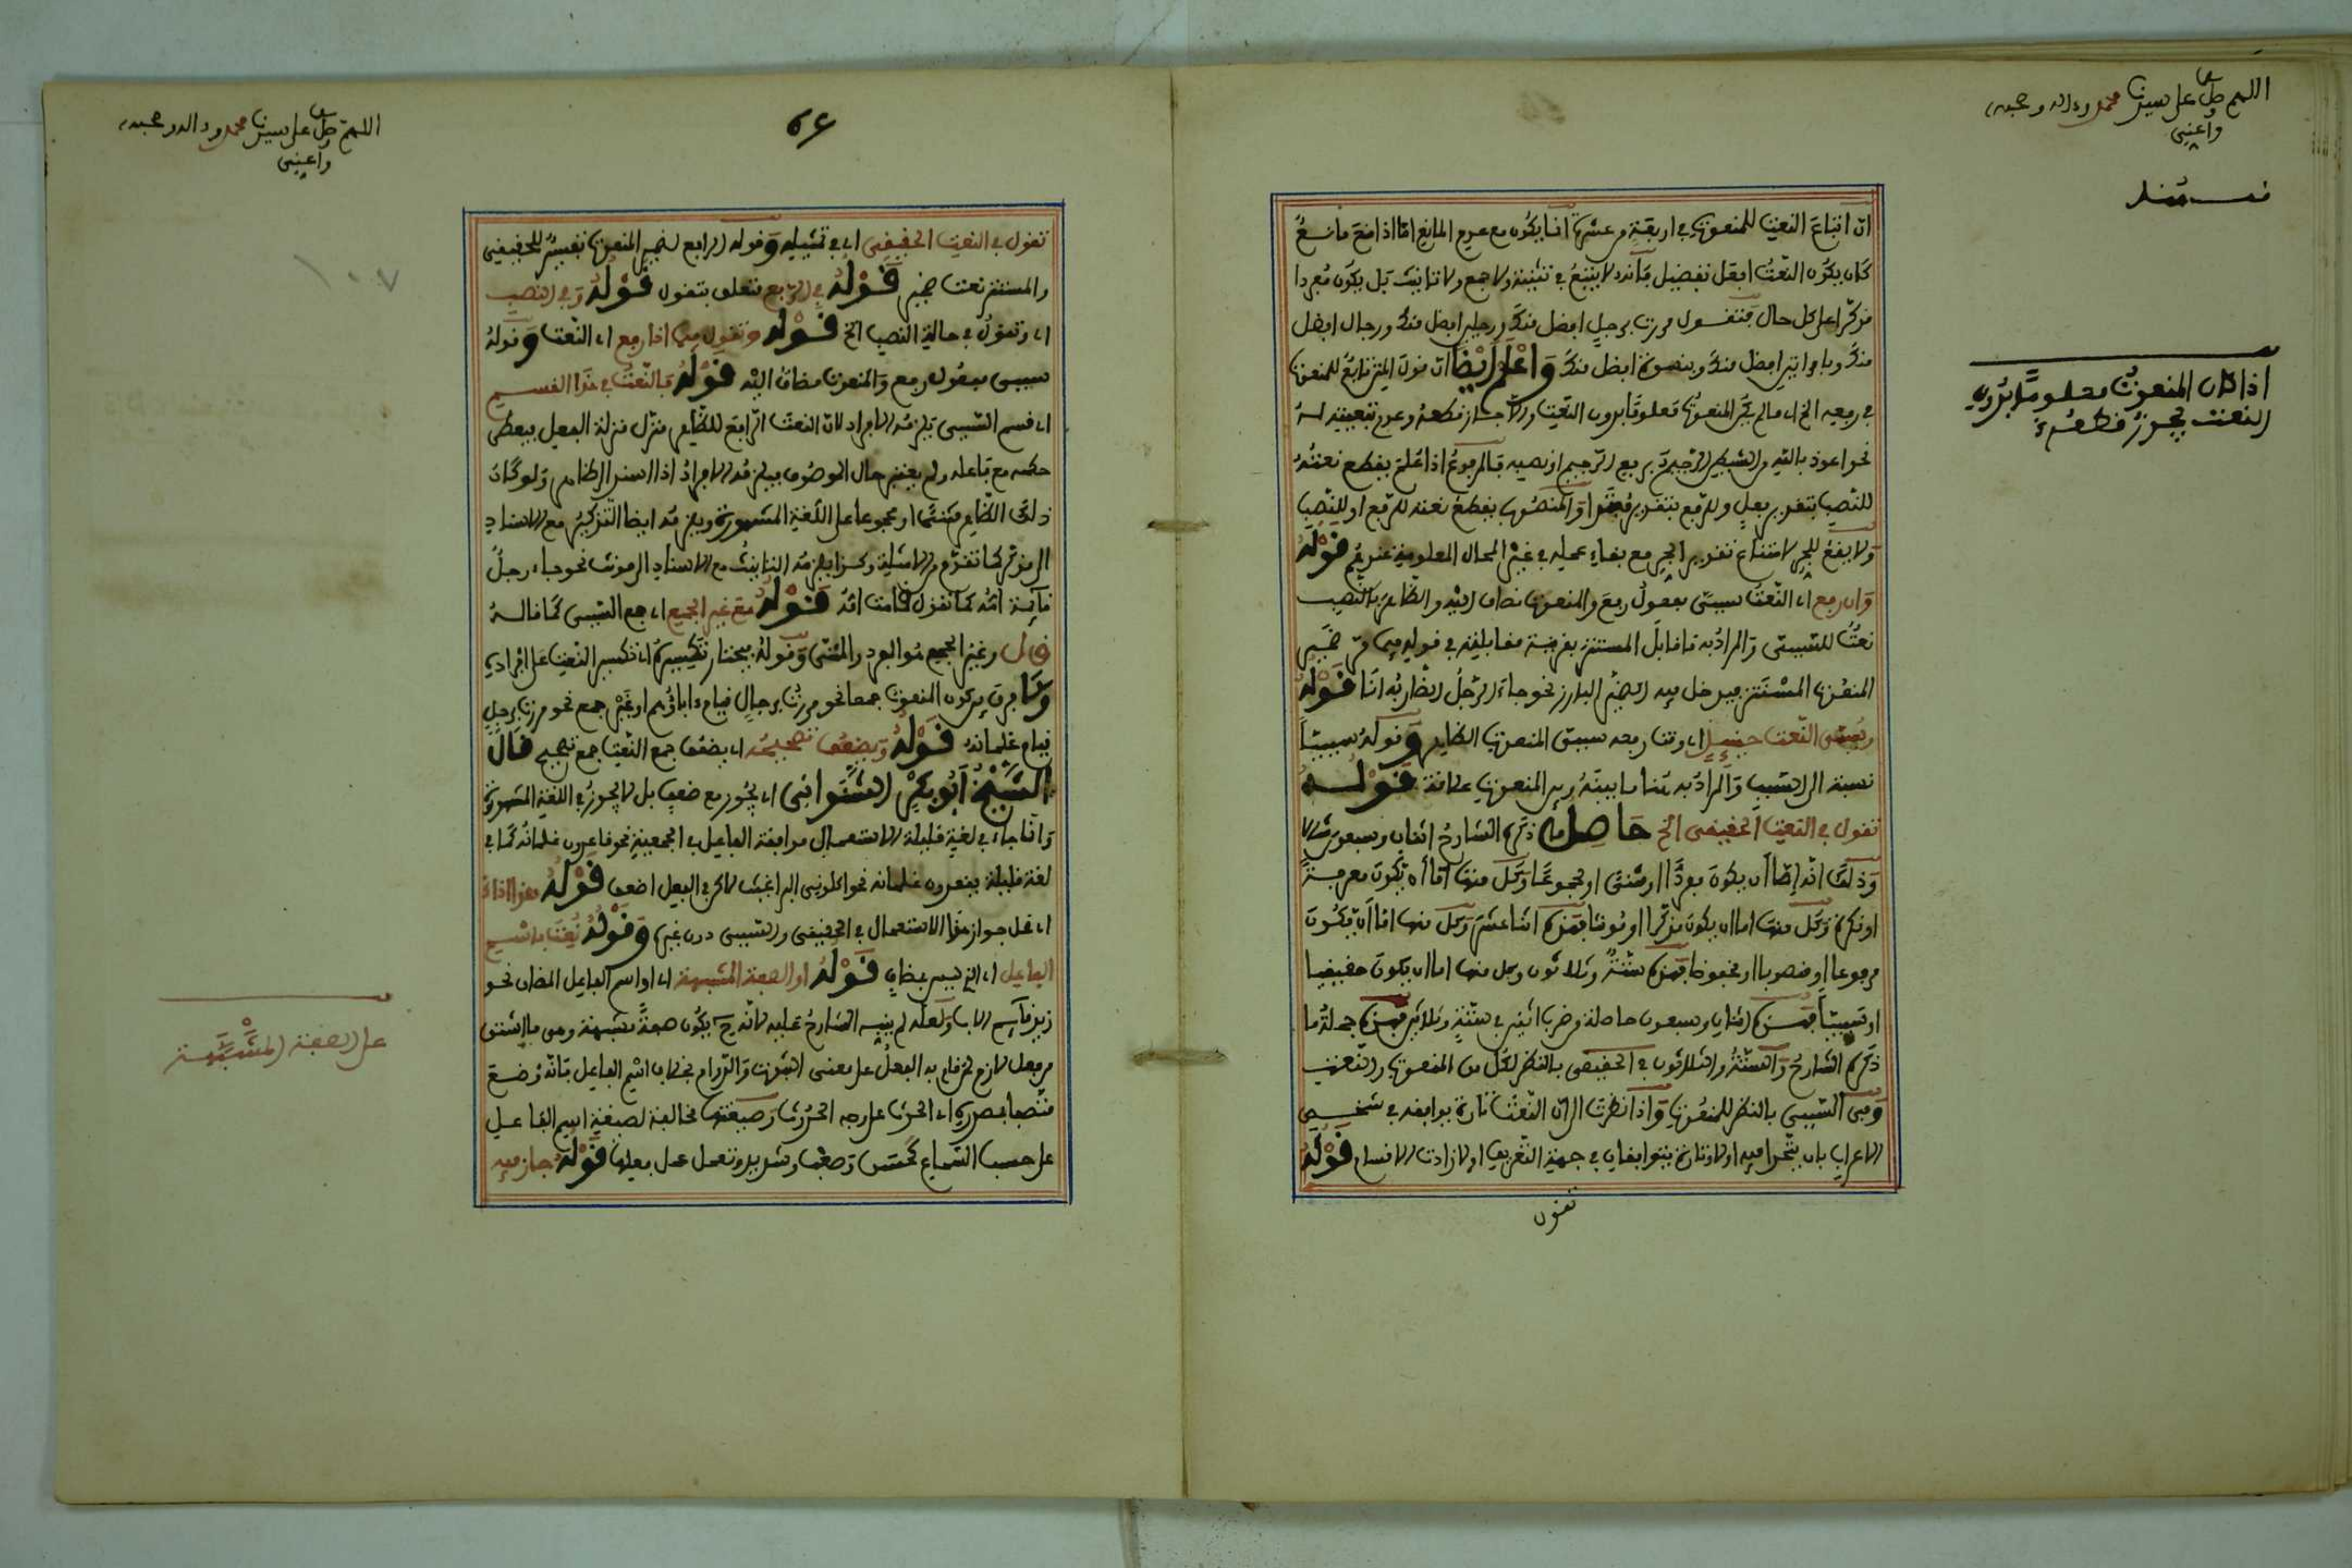 اللهم صل على سيدنا محمد وءاله وصحبه
وأعني
ان اتباع النعت للمنعوت في اربعة من عشرة انما يكون مع عدم المانع اما اذا منع مانع
كان يكون النعت افعل تفضيل فانه لا يتبع في تثنية ولا جمع ولا تانيث بل يكون مفردا
مذكرا على كل حال فتقول مررت برجل افضل منك ورجلين افضل منك ورجال افضل
منك وبامراتين افضل منك وبنسوة افضل منك واعلم ايضا ان قول المتن تابع للمنعوت
في رفعه الخ اي ما لم يكن المنعوت معلوما بدون النعت والا جاز قطعه وعدم تبعيته له
نحو اعوذ بالله من الشيطان الرجيم برفع الرجيم او نصبه فالمرفوع اذا علم يقطع نعته
للنصب بتقدير فعل وللرفع بتقدير مبتدا والمنصوب يقطع نعته للرفع او للنصب
ولا يقع للجر لامتناع تقدير الجر مع بقاء عمله في غير المحال المعلومة عندهم قوله
وان رفع اي النعت سببي مفعول رفع والمنعوت مضاف اليه والظاهر بالنصب
نعت للسببي والمراد به ما قابل المستتر بقرينة مقابلته في قوله فيما مر ضمير
المنعوت المستتر فيدخل فيه الضمير البارز نحو جاء الرجل الضاربه انا قوله
ويسمى النعت حينئذ اي وقت رفعه سببي المنعوت الظاهر وقوله سببيا
نسبة الى السبب والمراد به هنا ما بينه وبين المنعوت علاقة قوله
تقول في النعت الحقيقي الخ حاصل ما ذكره الشارح اثنان وسبعون مثالا
وذلك انه اما ان يكون مفردا او مثنى او مجموعا وكل منها اما ان يكون معرفة
او نكرة وكل منها اما ان يكون مذكرا او مونثا فهذه اثنا عشر وكل منها اما ان يكون
مرفوعا او منصوبا او مخفوضا فهذه ستة وثلاثون وكل منها اما ان يكون حقيقيا
او سببيا فهذه اثنان وسبعون حاصلة من ضرب اثنين في ستة وثلاثين فهذه جملة ما
ذكره الشارح والستة والثلاثون في الحقيقي بالنظر لكل من المنعوت والنعت
وفي السببي بالنظر للمنعوت واذا نظرت الى ان النعت تارة يوافقه في شخص
الاعراب بان يتحدا فيه اولا وتارة يتوافقان في جهة التعريف اولا زادت الاقسام قوله
تقول
اذا كان المنعوت معلوما بدون
النعت يجوز قطعه
اللهم صل على سيدنا محمد وءاله وصحبه
وأعني
تقول في النعت الحقيقي اي في تمثيله وقوله الرابع لضمير المنعوت تفسير للحقيقي
والمستتر نعت ضمير قوله في الرفع متعلق بتقول قوله وفي النصب
اي وتقول في حالة النصب الخ قوله وتقول فيما اذا رفع اي النعت وقوله
سببي مفعول رفع والمنعوت مضاف اليه قوله فالنعت في هذا القسم
اي قسم السببي يلزمه الافراد لان النعت الرافع للظاهر منزل منزلة الفعل فيعطى
حكمه مع فاعله ولم يعتبر حال الموصوف فيلزمه الافراد اذا اسند الى الظاهر ولو كان
ذلك الظاهر مثنى او مجموعا على اللغة المشهورة ويلزمه ايضا التذكير مع الاسناد
الى مذكر كما تقدم من الامثلة وكذا يلزمه التانيث مع الاسناد الى مونث نحو جاء رجل
قائمة امه كما تقول قامت امه قوله مع غير الجمع اي جمع السببي كما قاله
وغير الجمع هو المفرد والمثنى وقوله فيختار تكسيره اي تكسير النعت على افراده
ولا فرق بين كون المنعوت جمعا نحو مررت برجال قيام ءاباؤهم او غير جمع نحو مررت برجل
قيام غلمانه قوله ويضعف تصحيحه اي يضعف جمع النعت جمع تصحيح قال
الشيخ ابو بكر الشنواني اي يجوز مع ضعف بل لا يجوز في اللغة المشهورة
وانما جاء في لغة قليلة الاستعمال موافقة الفاعل في الجمعية نحو قاعدون غلمانه كما في
لغة قليلة يقعدون غلمانه نحو اكلوني البراغيث لاكن في الفعل اضعف قوله هذا اذا
اي محل جواز هذا الاستعمال في الحقيقي والسببي دون غيره وقوله نعت باسم
الفاعل اي الغير المضاف قوله او الصفة المشبهة اي او اسم الفاعل المضاف نحو
زيد قائم الاب ولعله لم ينبه الشارح عليه لانه ح يكون صفة مشبهة وهي ما اشتق
من فعل لازم لمن قام به الفعل على معنى الثبوت والدوام بخلاف اسم الفاعل فانه وضع
متصفا بمصدره اي الحدث على وجه الحدوث وصيغتها مخالفة لصيغة اسم الفاعل
على حسب السماع كحسن وصعب وشديد وتعمل عمل فعلها قوله جاز فيه
على الصفة المشبهة
١٠٧